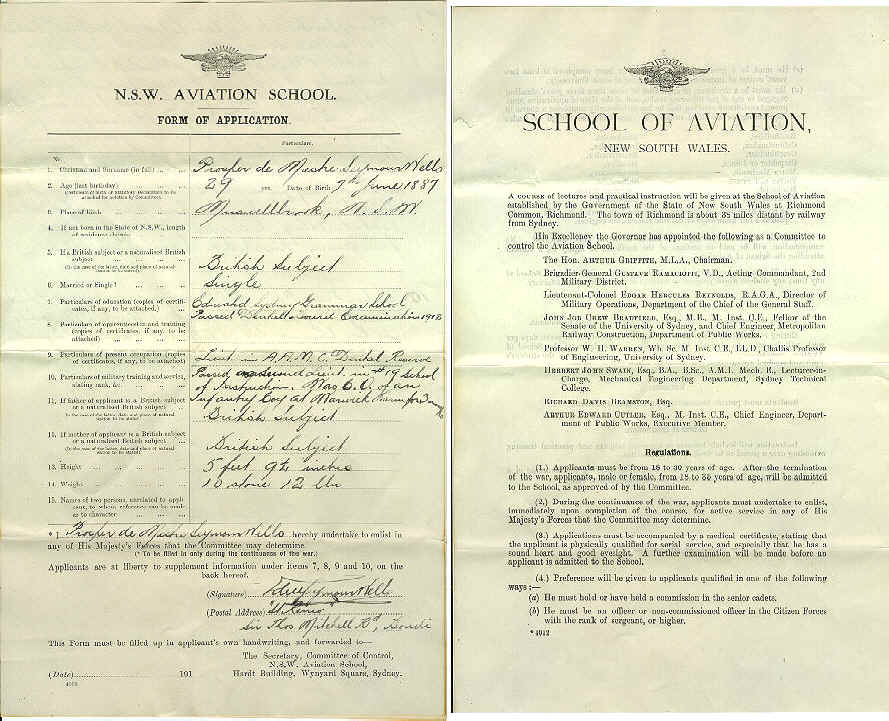 N.S.W. AVIATION SCHOOL.
FORM OF APPLICATION.
Particulars.
No
1. Christian and Surname (in full) Prosper de Mestre Seymour Wells
2. Age (last birthday) 29 yrs. Date of Birth 7th June 1887
(Certificate of birth or statutory declaration to be
attached for minors by Committee).
3. Place of birth Musswellbrook, N.S.W.
4. If not born in the State of N.S.W., length
of residence therein
5. If a British subject or a naturalised British
subject British Subject
(In the case of the latter, date and place of natural-
isation to be stated)
6. Married or Single? Single
7. Particulars of education (copies of certifi-
cates, if any, to be attached.) Edu Sydney Grammar School
8. Particulars of apprenticeship and training
(copies of certificates, if any, to be
attached) Passed Dental Board Examination 1912
9. Particulars of present occupation (copies
of certificates, if any, to be attached) Lieut in A.A.M.C. Dental Reserve
10. Particulars of military training and service,
stating rank, &c. Passed in #19 School
of Instruction. Was O.C. of an
Infantry Coy at Warwick Farm for
11. If father of applicant is a British subject
or a naturalised British subject British Subject
(In the case of the latter, date and place of natural-
isation to be stated)
12. If mother of applicant is a British subject
or a naturalised British subject British Subject
(In the case of the latter, date and place of natural-
isation to be stated)
13. Height 5 feet 9½ inches
14. Weight 10 stone 12 lbs
15. Names of two persons, unrelated to appli-
cant, to whom reference can be made
as to character
* I Prosper de Mestre Seymour Wells hereby undertake to enlist in
any of His Majesty's Forces that the Committee may determine.
(* To be filled in only during the continuance of the war.)
Applicants are at liberty to supplement information under items 7, 8, 9 and 10, on the
back hereof.
(Signature) Seymour Wells
(Postal Address)
Sir Thos Mitchell Rd, Bondi
This Form must be filled up in applicant's own handwriting, and forwarded to—
The Secretary, Committee of Control,
N.S.W. Aviation School,
(Date) 191 Hardt Building, Wynyard Square, Sydney.
4012
SCHOOL OF AVIATION,
NEW SOUTH WALES.
A COURSE of lectures and practical instruction will be given at the School of Aviation
established by the Government of the State of New South Wales at Richmond
Common, Richmond. The town of Richmond is about 38 miles distant by railway
from Sydney.
His Excellency the Governor has appointed the following as a Committee to
control the Aviation School.
The Hon. ARTHUR GRIFFITH, M.L.A., Chairman.
Brigadier-General GUSTAVE RAMACIOTTI, V.D., Acting Commandant, 2nd
Military District.
Lieutenant-Colonel EDGAR HERCULES REYNOLDS, R.A.G.A., Director of
Military Operations, Department of the Chief of the General Staff.
JOHN JOB CREW BRADFIELD, Esq., M.E., M. Inst. C.E., Fellow of the
Senate of the University of Sydney, and Chief Engineer, Metropolitan
Railway Construction, Department of Public Works.
Professor W. H. WARREN, Wh. Sc. M. Inst. C.E., LL.D., Challis Professor
of Engineering, University of Sydney.
HERBERT JOHN SWAIN, Esq., B.A., B.Sc., A.M.I. Mech. E., Lecturer-in-
Charge, Mechanical Engineering Department, Sydney Technical
College.
RICHARD DAVIS BEAMSTON, Esq.
ARTHUR EDWARD CUTLER, Esq., M. Inst. C.E., Chief Engineer, Depart-
ment of Public Works, Executive Member.
Regulations.
(1.) Applicants must be from 18 to 30 years of age. After the termination
of the war, applicants, male or female, from 18 to 35 years of age, will be admitted
to the School, as approved of by the Committee.
(2.) During the continuance of the war, applicants must undertake to enlist,
immediately upon completion of the course, for active service in any of His
Majesty's Forces that the Committee may determine.
(3.) Applications must be accompanied by a medical certificate, stating that
the applicant is physically qualified for aerial service, and especially that he has a
sound heart and good eyesight. A further examination will be made before an
applicant is admitted to the School.
(4.) Preference will be given to applicants qualified in one of the following
ways:—
(a) He must hold or have held a commission in the senior cadets.
(b) He must be an officer or non-commissioned officer in the Citizen Forces
with the rank of sergeant, or higher.
* 4012